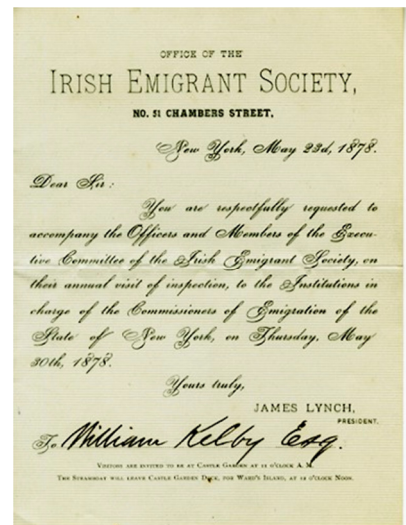 OFFICE OF THE
IRISH EMIGRANT SOCIETY,
NO. 51 CHAMBERS STREET,
New York, May 23d, 1878.
Dear Sir:
You are respectfully requested to
accompany the Officers and Members of the Execu-
tive Committee of the Irish Emigrant Society, on
their annual visit of inspection, to the Institutions in
charge of the Commissioners of Emigration of the
State of New York, on Thursday, May
30th, 1878.
Yours truly,
JAMES LYNCH,
PRESIDENT.
To William Kelby Esq.
VISITORS ARE INVITED TO BE AT CASTLE GARDEN AT 11 O'CLOCK A. M.
THE STEAMBOAT WILL LEAVE CASTLE GARDEN DOCK, FOR WARD'S ISLAND, AT 12 O'CLOCK NOON.